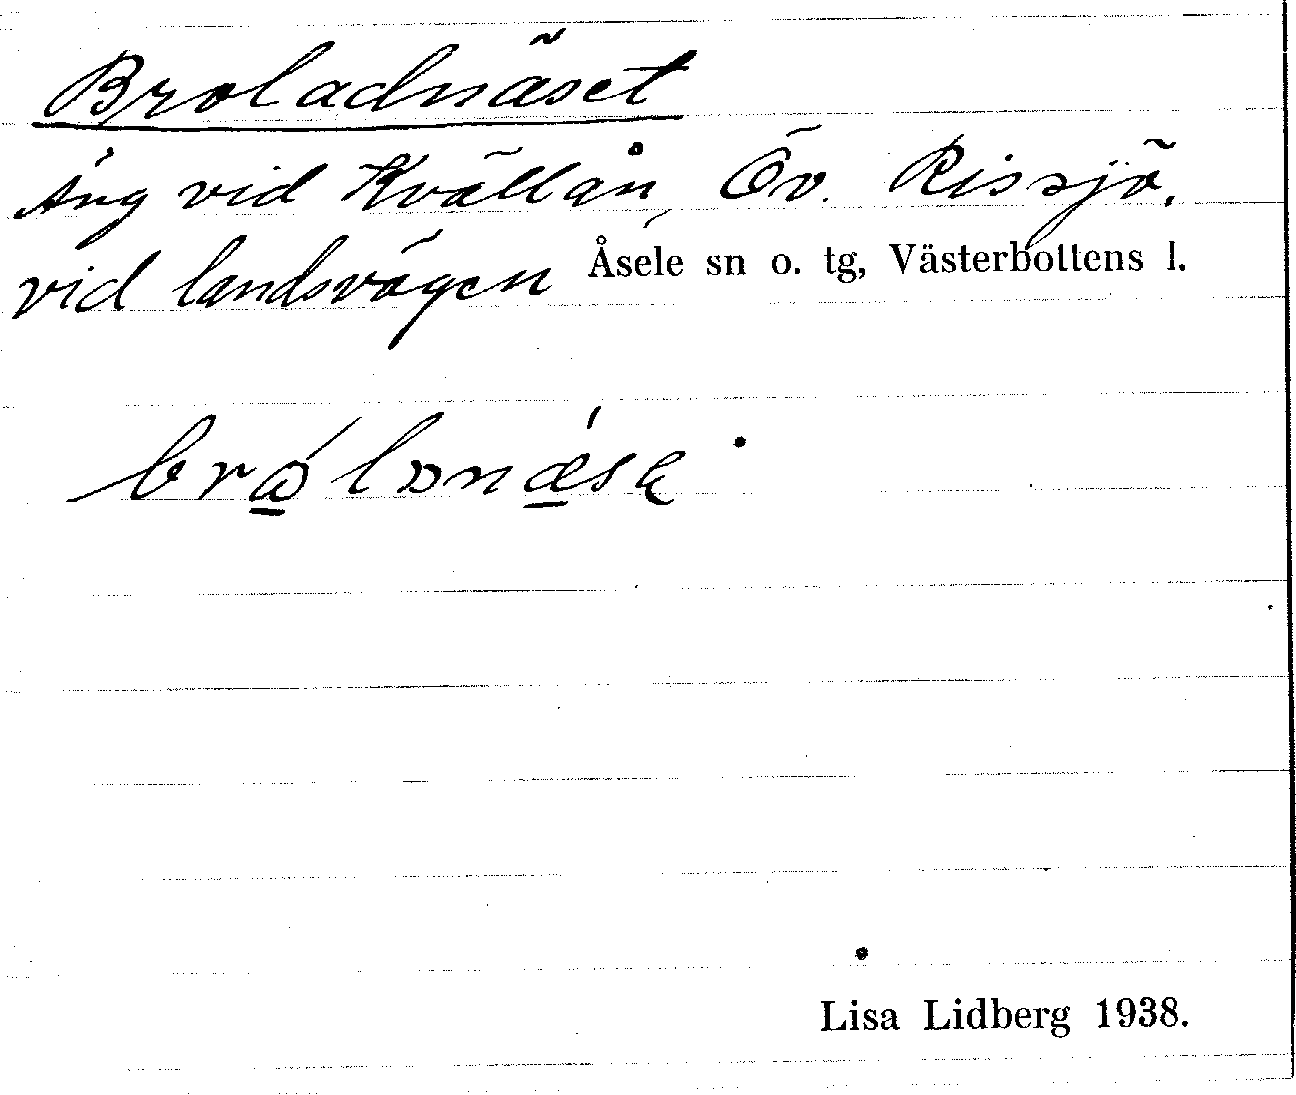 Broladnäset
Äng vid Kvällån, Öv. Rissjö,
vid landsvägen Åsele sn o. tg, Västerbottens l.
Lisa Lidberg 1938.